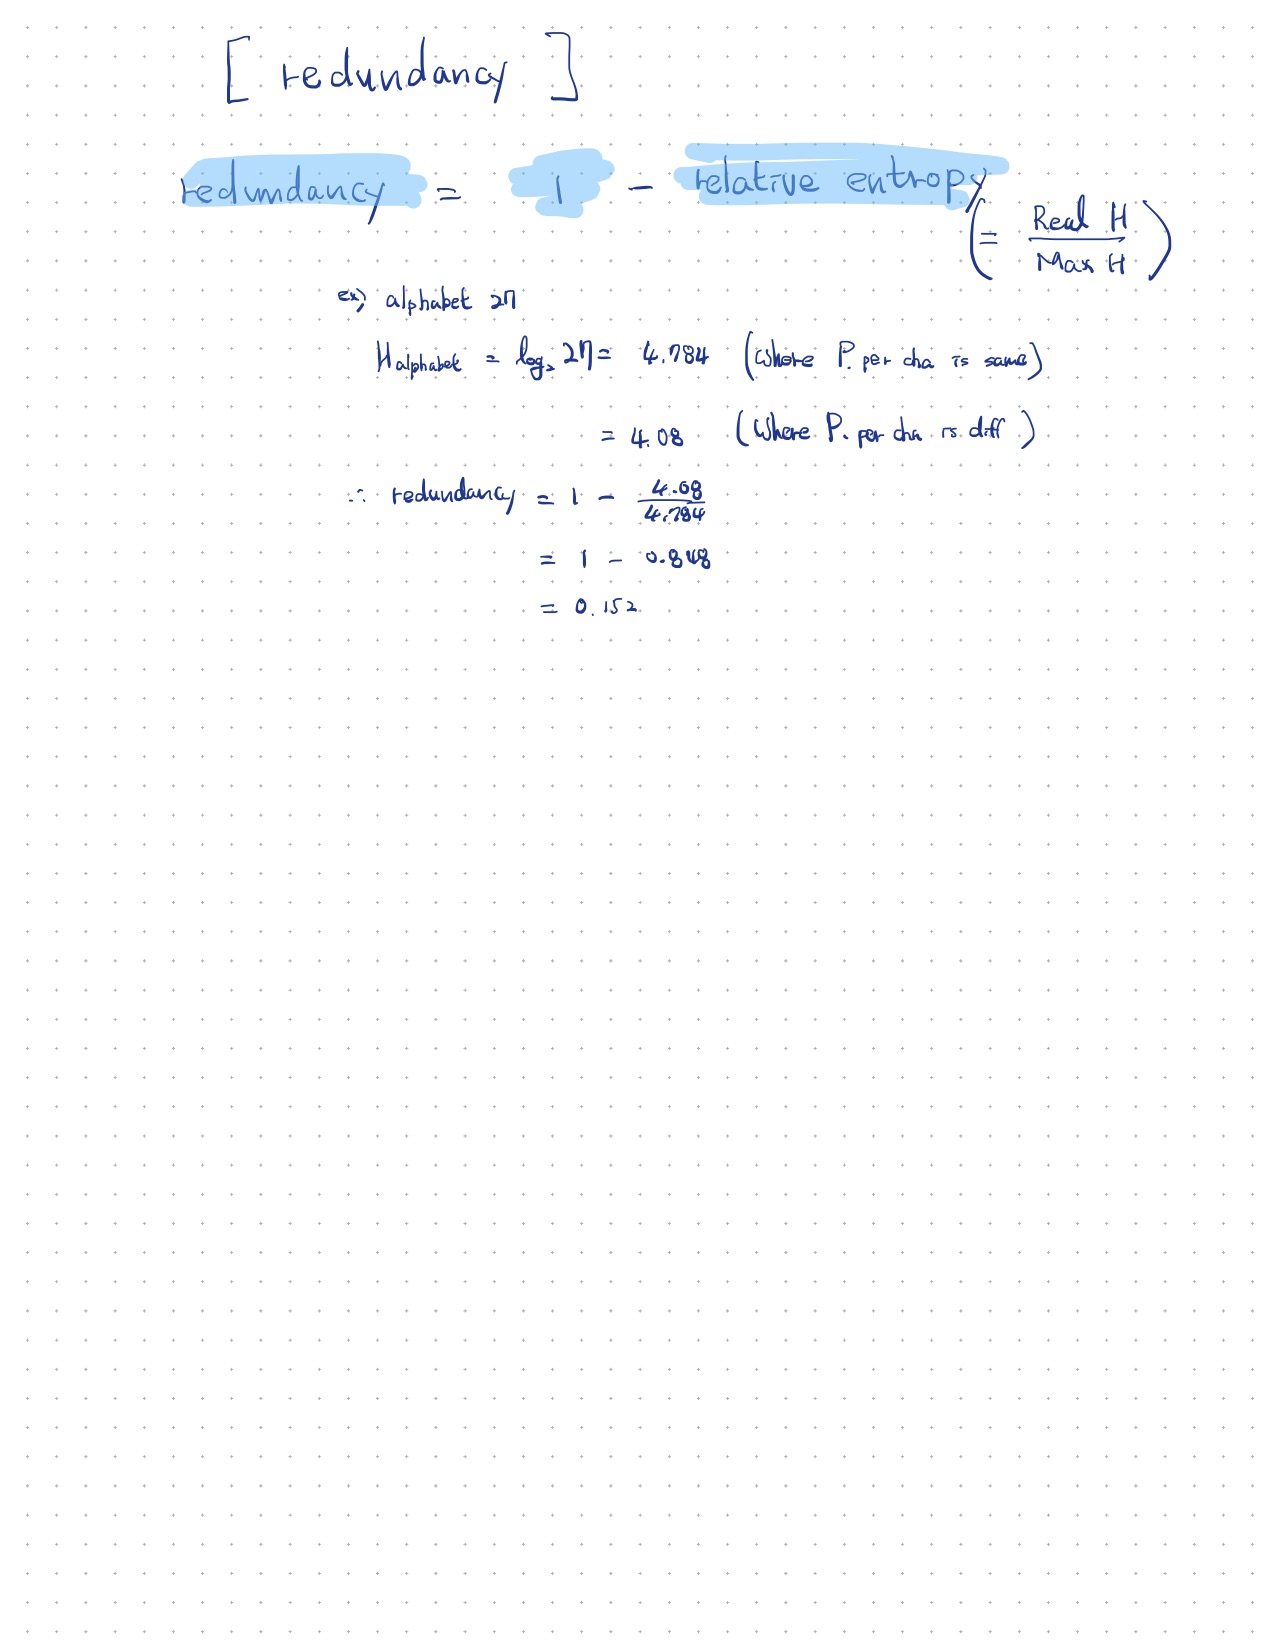 [ redundancy ]
redundancy = 1 - relative entropy
( = Real H / Max H )
ex) alphabet 27
H alphabet = log₂ 27 = 4.784 (where P. per cha is same)
= 4.08 (where P. per cha is diff)
∴ redundancy = 1 - 4.08 / 4.784
= 1 - 0.848
= 0.152